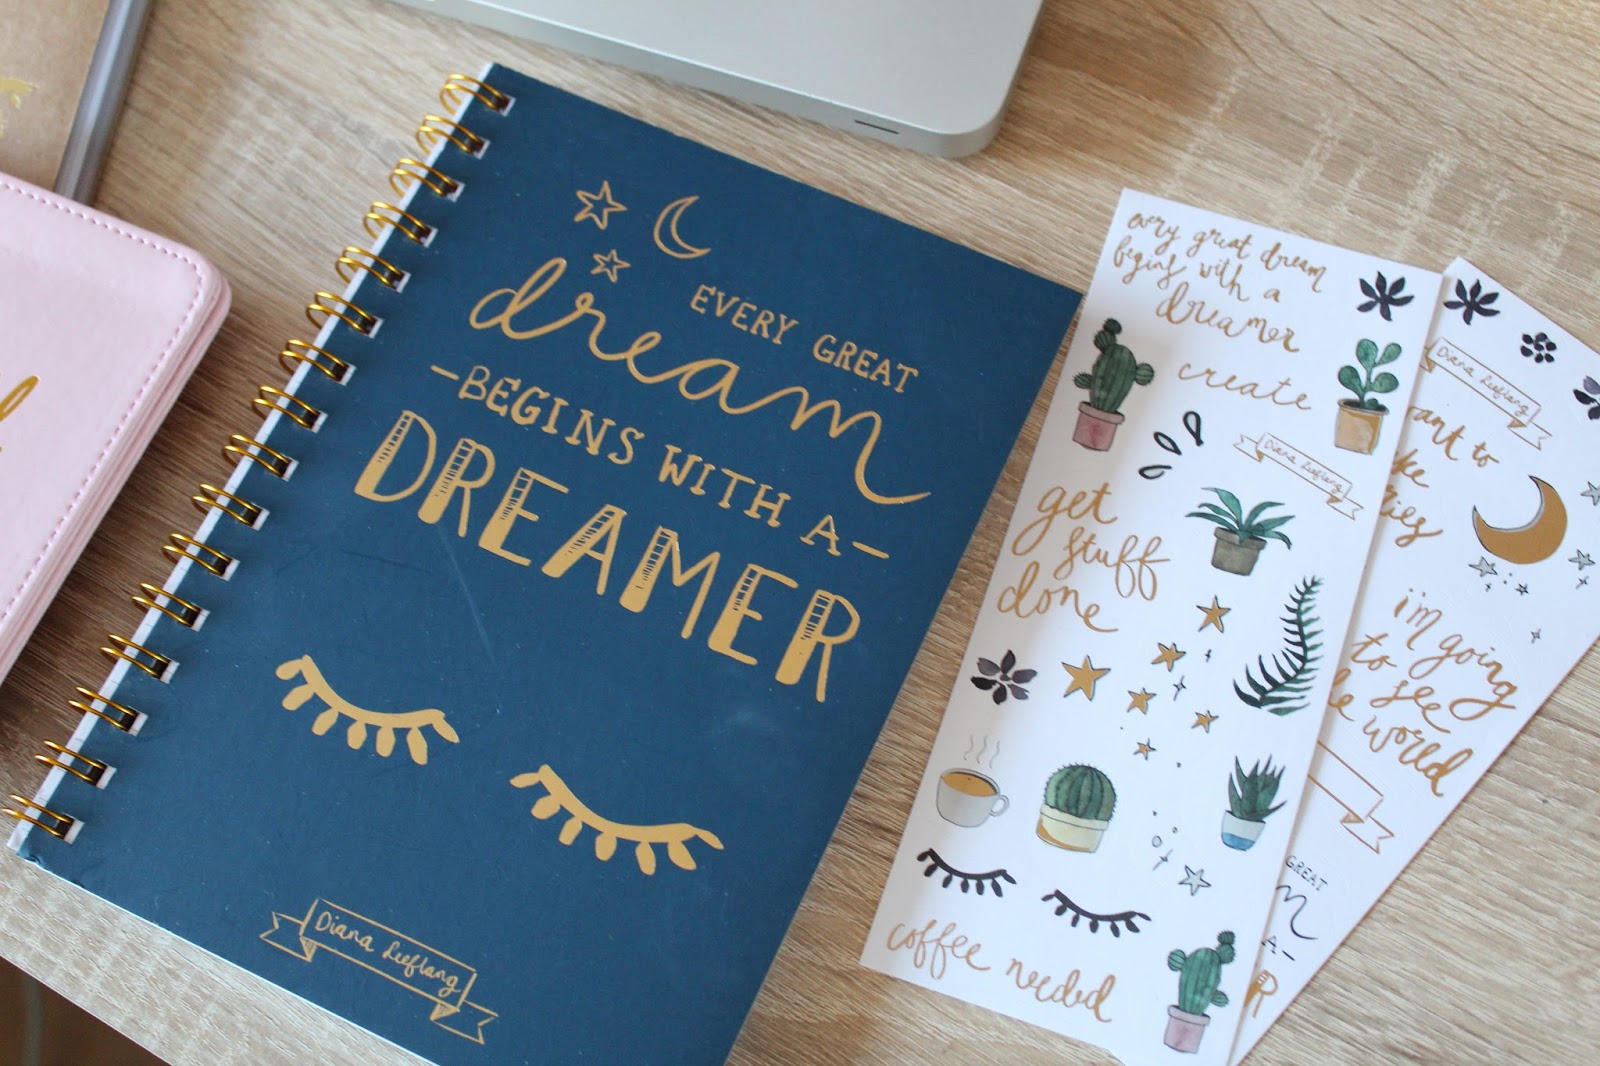 EVERY GREAT
dream
-BEGINS WITH A-
DREAMER
Diana Leeflang
every great dream
begins with a
dreamer
create
Diana Leeflang
get
stuff
done
coffee needed
Diana Leeflang
to
i'm going
to see
world
GREAT
A-
R